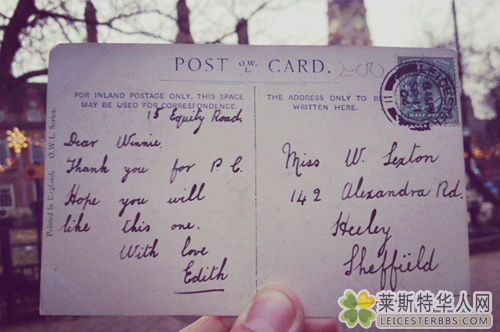 POST O.W.L. CARD. 200
FOR INLAND POSTAGE ONLY, THIS SPACE
MAY BE USED FOR CORRESPONDENCE.
15 Equity Road
Dear Winnie.
Thank you for P.C.
Hope you will
like this one.
With love
Edith
Printed in England.
O.W.L. Series.
THE ADDRESS ONLY TO BE
WRITTEN HERE.
Miss W. Sexton
142 Alexandra Rd.
Heeley
Sheffield
LEICESTER
HALF
莱斯特华人网
LEICESTERBBS.COM